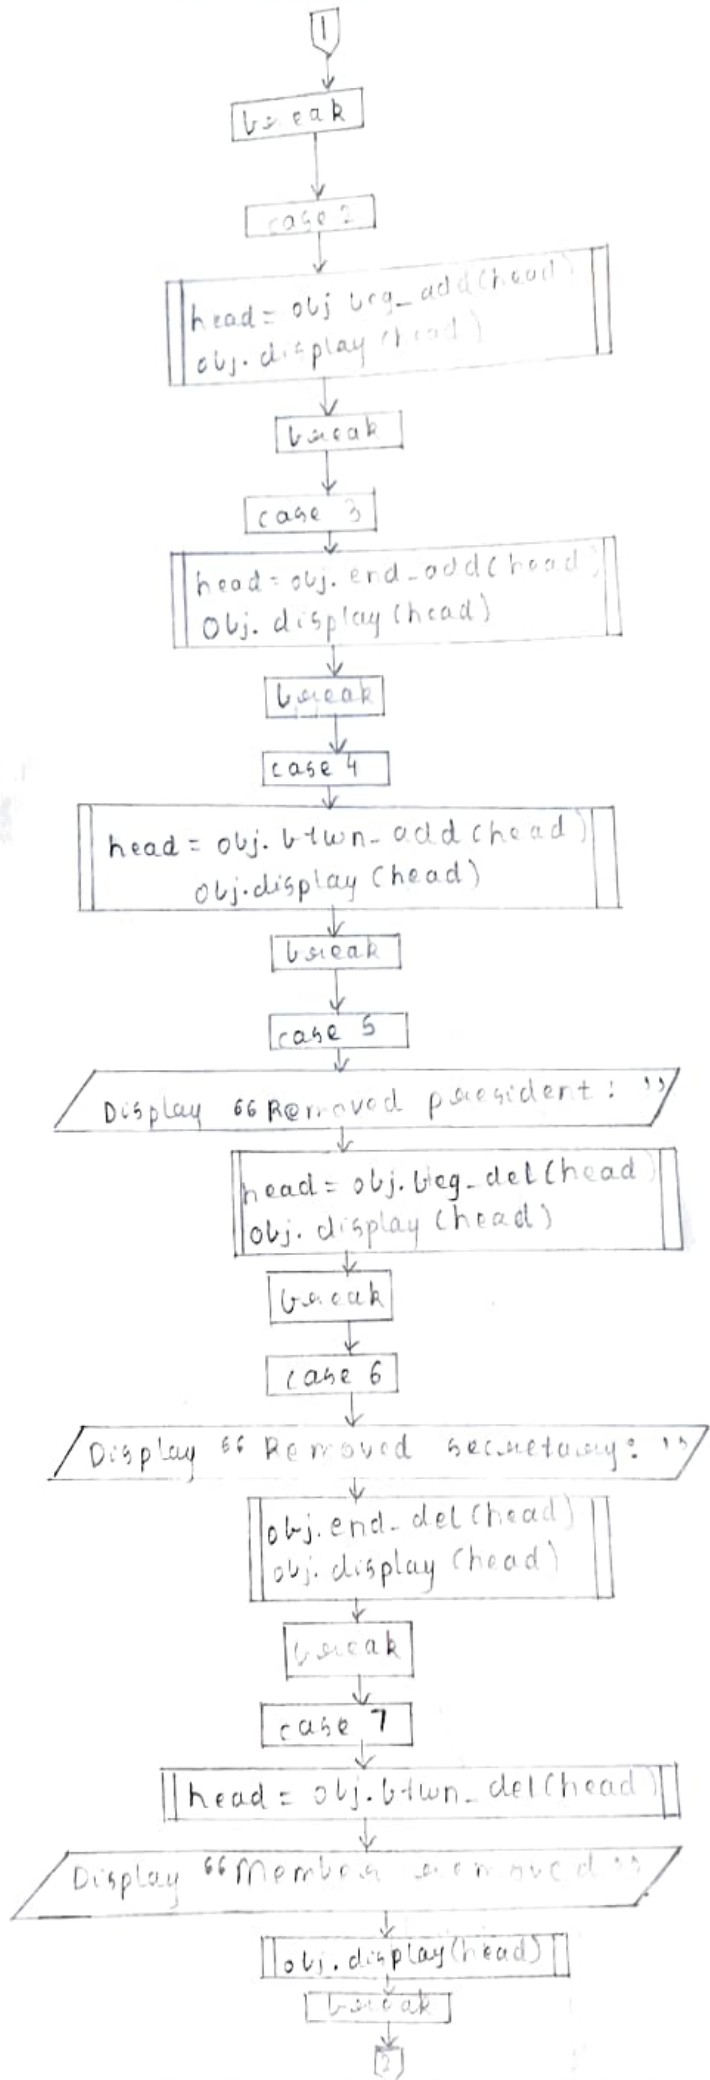 1
break
case 2
head = obj beg_add(head)
obj.display(head)
break
case 3
head = obj.end_add(head)
obj.display(head)
break
case 4
head = obj.btwn_add(head)
obj.display(head)
break
case 5
Display "Removed president: "
head = obj.beg_del(head)
obj.display(head)
break
case 6
Display "Removed secretary: "
obj.end_del(head)
obj.display(head)
break
case 7
head = obj.btwn_del(head)
Display "Member removed"
obj.display(head)
break
2